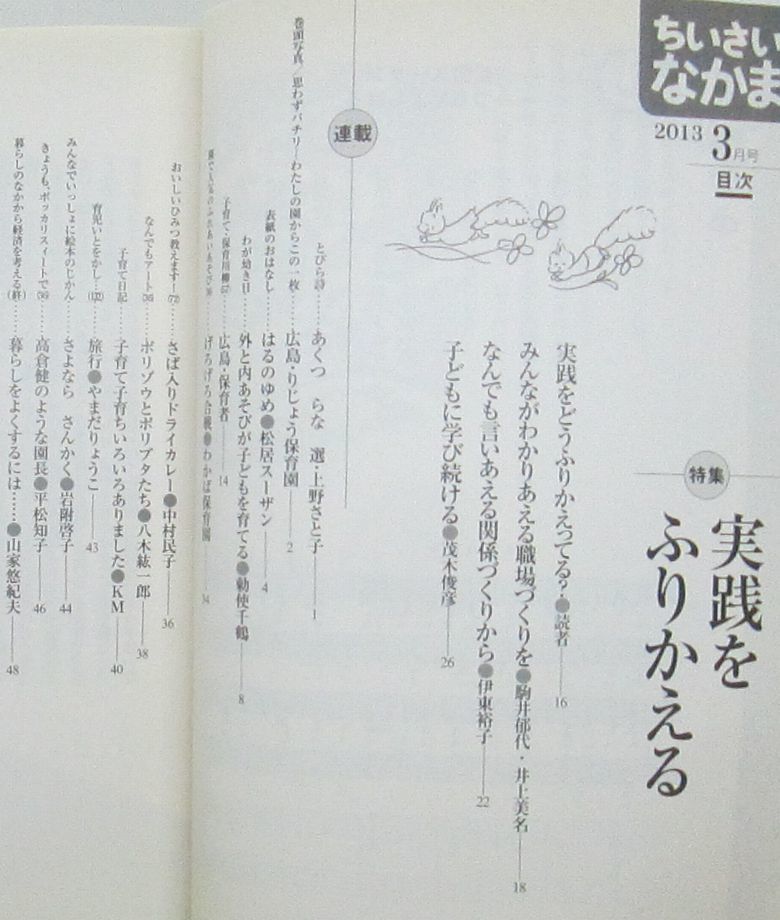 ちいさい
なかま
2013 3月号
目次
特集
実践を
ふりかえる
実践をどうふりかえってる?●読者——16
みんながわかりあえる職場づくりを●駒井郁代・井上美名——18
なんでも言いあえる関係づくりから●伊東裕子——22
子どもに学び続ける●茂木俊彦——26
連載
とびら詩……あくつ らな 選・上野さと子——1
巻頭写真/思わずパチリ!わたしの園からこの一枚……広島・りじょう保育園——2
表紙のおはなし……はるのゆめ●松居スーザン——4
わが幼き日……外と内あそびが子どもを育てる●勅使千鶴——8
子育て・保育川柳(57)……広島・保育者——14
げろげろ合戦●わかば保育園——34
おいしいひみつ教えます!(72)……さば入りドライカレー●中村民子——36
なんでもアート(36)……ポリゾウとポリブタたち●八木紘一郎——38
子育て日記……子育て子育ちいろいろありました●KM——40
育児いとをかし…(132)……旅行●やまだりょうこ——43
みんなでいっしょに絵本のじかん……さよなら さんかく●岩附啓子——44
きょうも、ポッカリスィートで(36)……高倉健のような園長●平松知子——46
暮らしのなかから経済を考える(終)……暮らしをよくするには……●山家悠紀夫——48